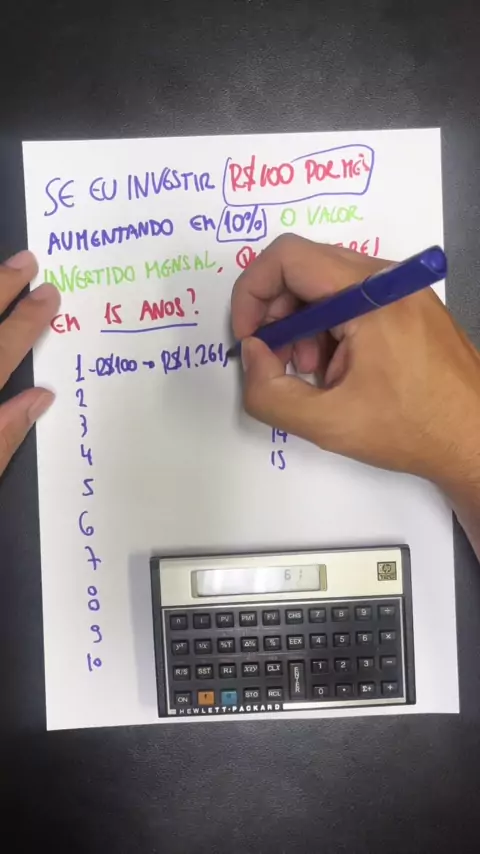 SE EU INVESTIR R$100 POR MÊS
AUMENTANDO EM 10% O VALOR
INVERTIDO MENSAL,
EM 15 ANOS?
1 - R$100 → R$1.261,
2
3
14
4
15
5
6
7
8
9
10
61
hp
n i PV PMT FV CHS 7 8 9 ÷
yˣ 1/x %T Δ% % EEX 4 5 6 ×
R/S SST R↓ x≷y CLx ENTER 1 2 3 −
ON f g STO RCL 0 . Σ+ +
HEWLETT·PACKARD